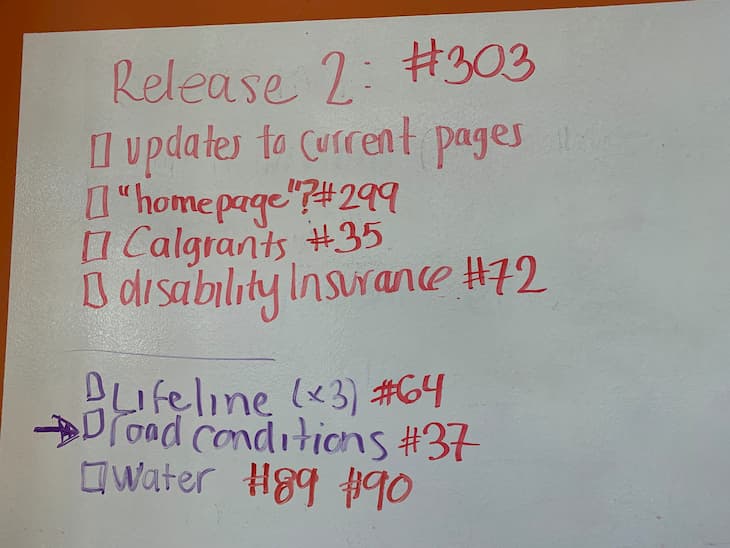 Release 2: #303
updates to current pages
"homepage"? #299
Calgrants #35
disability Insurance #72
Lifeline (x3) #64
road conditions #37
Water #89 #90